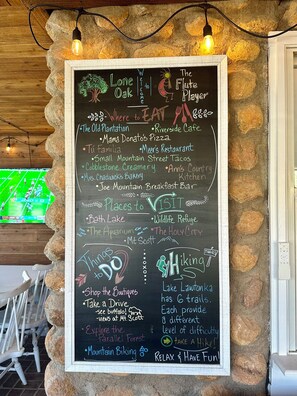 Lone Oak
Welcome
The Flute Player
Where to EAT
• The Old Plantation
• Riverside Cafe
• Mama Donato's Pizza
• Tu Familia
• Meers Restaurant
• Small Mountain Street Tacos
• Cobblestone Creamery
• Ann's Country Kitchen
• Mrs. Chadwick's Bakery
• Joe Mountain Breakfast Bar
Places to VISIT
• Bath Lake
• Wildlife Refuge
• The Aquarium
• The Holy City
• Mt Scott
Things to DO
• Shop the Boutiques
• Take a Drive
- see buffalo
- views at Mt Scott
• Explore the Parallel Forest
• Mountain Biking
Hiking
Lake Lawtonka
has 6 trails.
Each provide
a different
level of difficulty
Take a Hike!
XOXO
Relax & Have Fun!